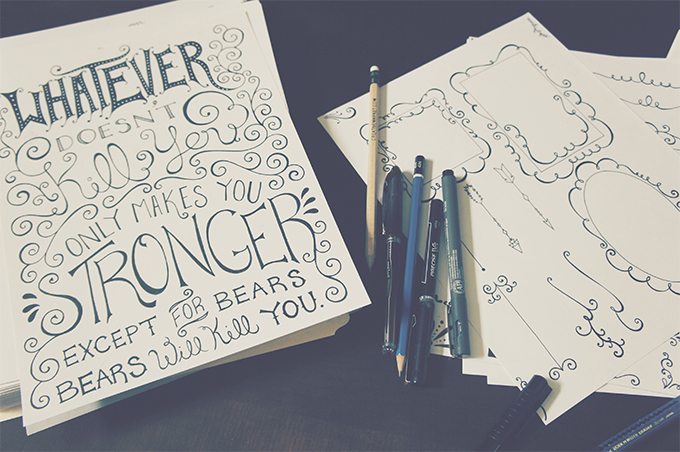 WHATEVER
DOESN'T
Kill You
ONLY MAKES YOU
STRONGER
EXCEPT FOR BEARS
BEARS Will Kill YOU.